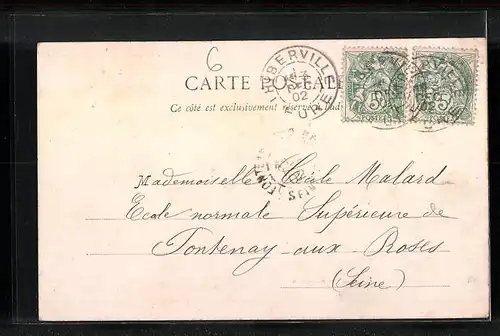 6
CARTE POSTALE
Ce côté est exclusivement réservé à l'adr
THUBERVILLE
02
EURE
5
5
FONTENAY
SEINE
Mademoiselle Cécile Malard
Ecole normale Supérieure de
Fontenay-aux-Roses
(Seine)